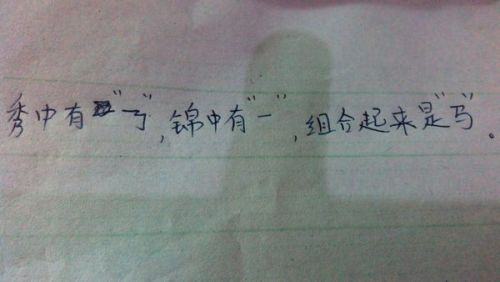 秀中有“”,锦中有“一”,组合起来是“马”。